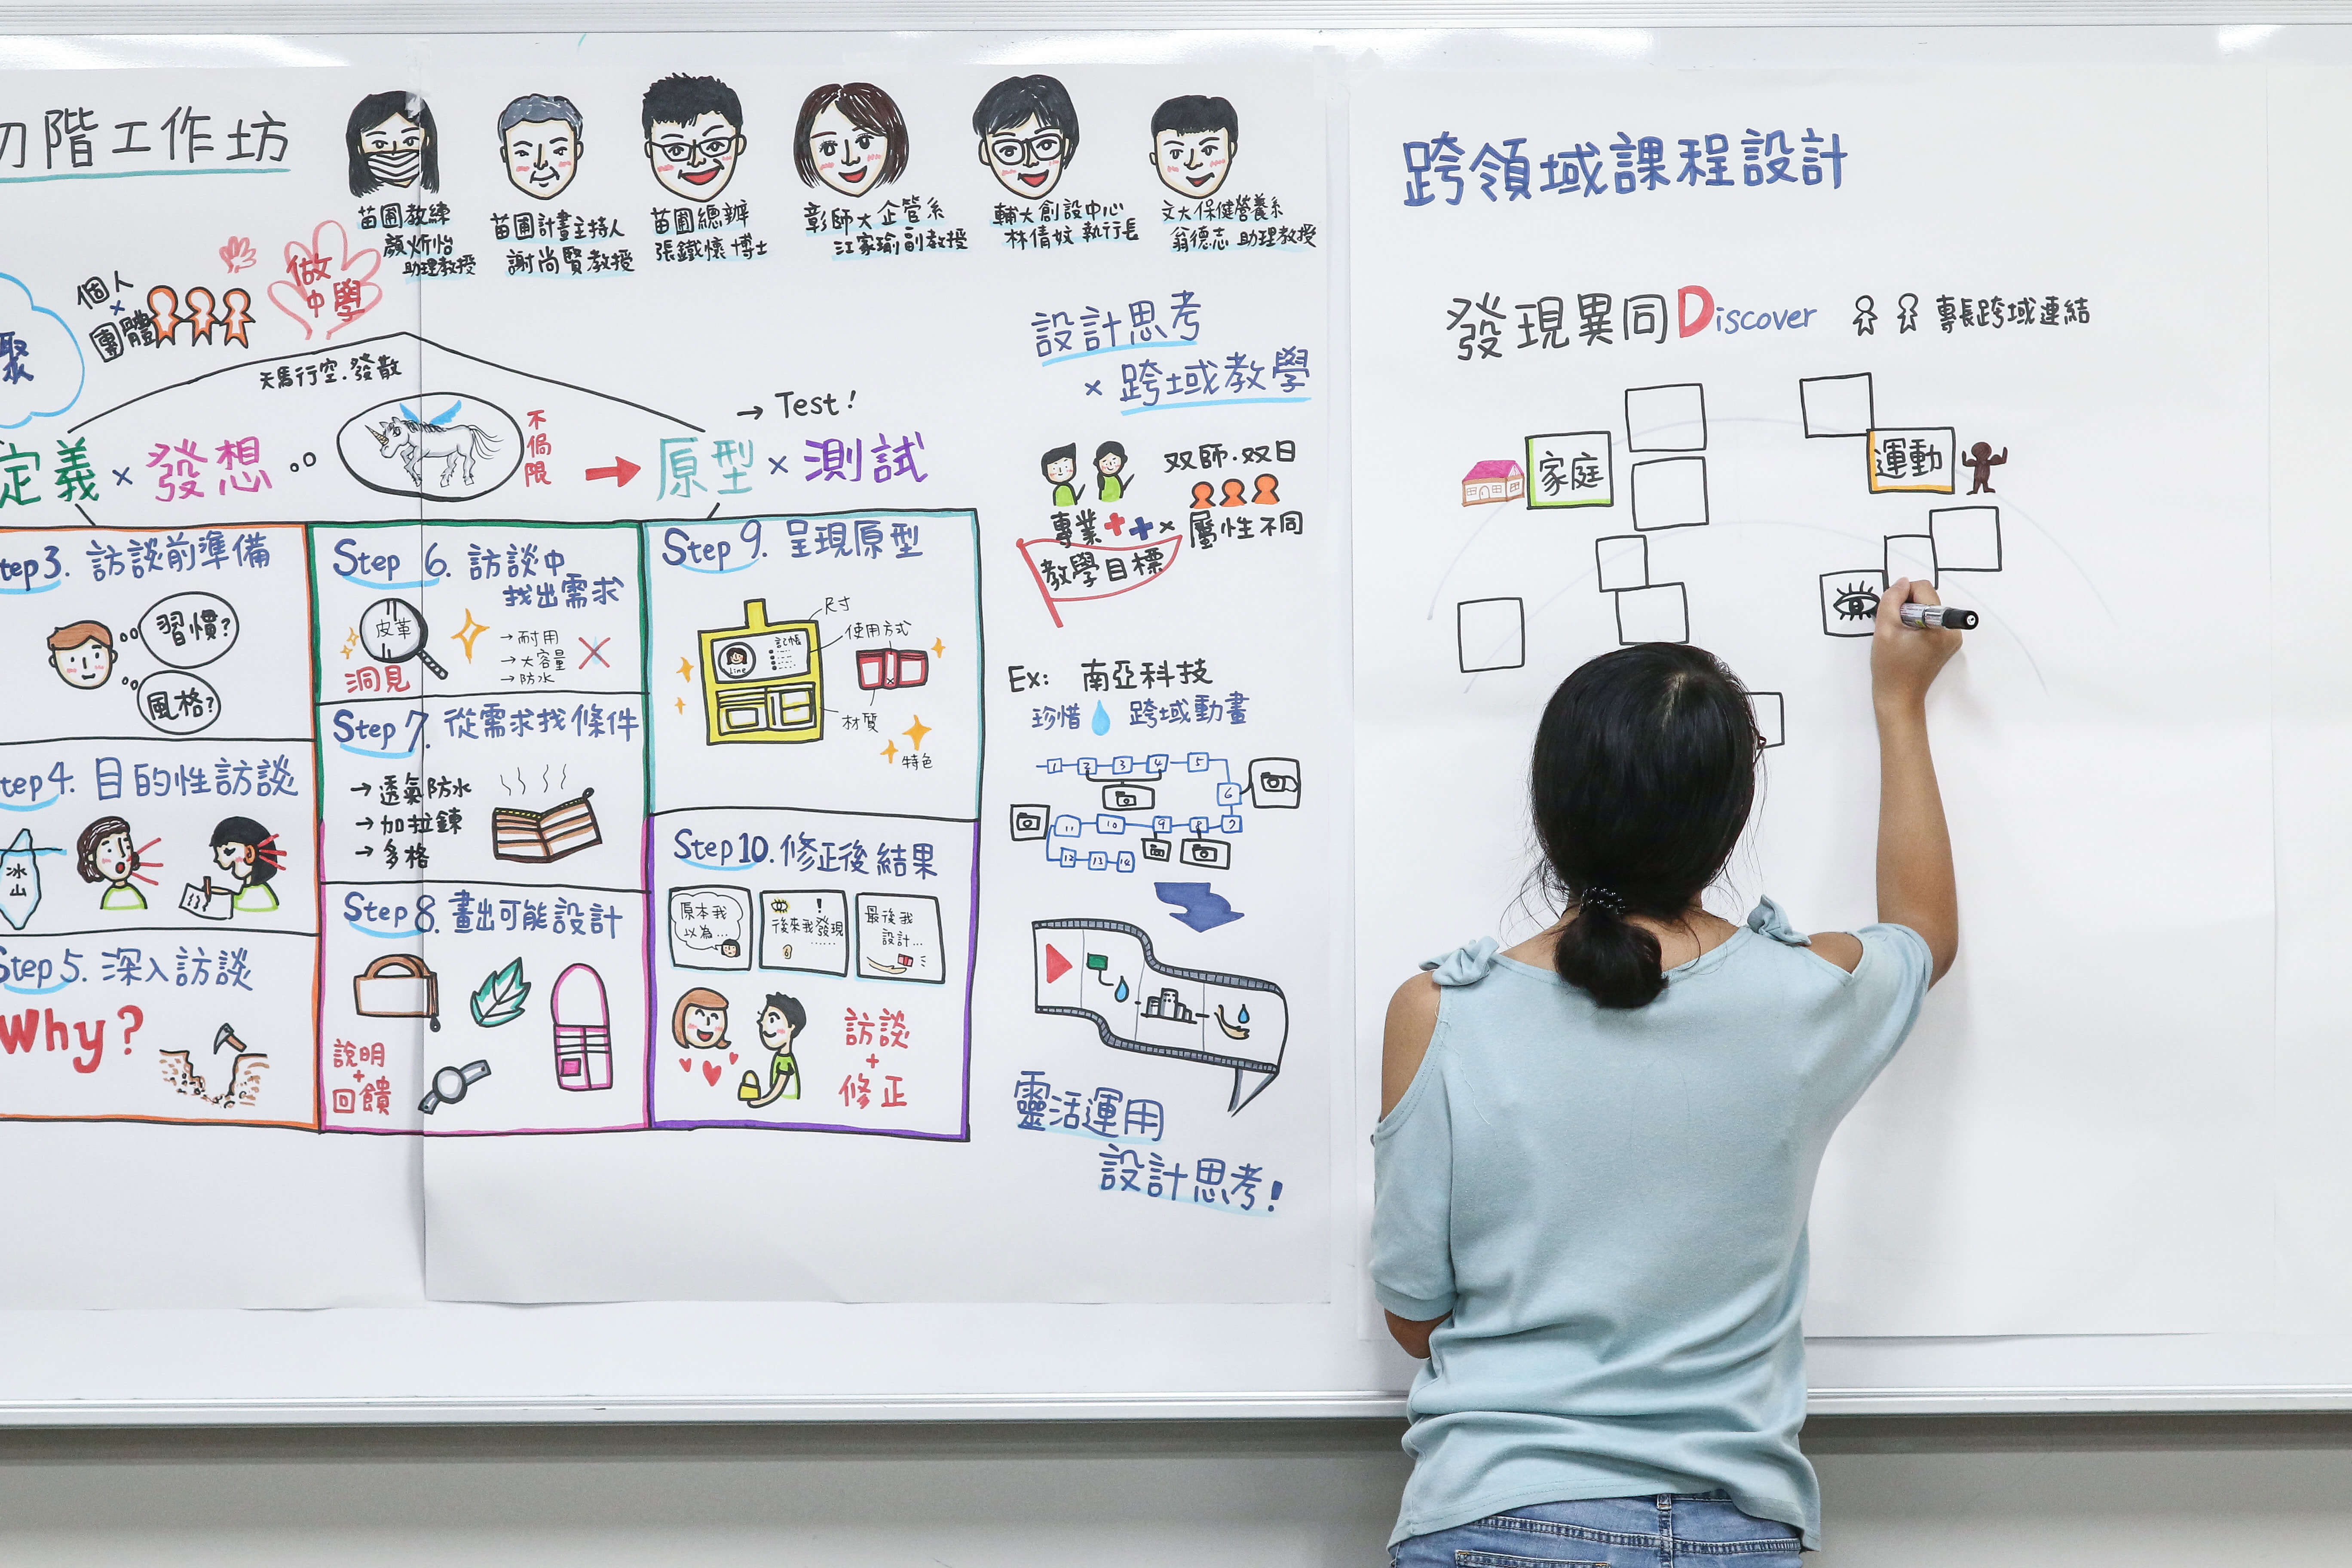 初階工作坊
苗圃教練
顏妡怡
助理教授
苗圃計畫主持人
謝尚賢教授
苗圃總辦
張鐵懷博士
彰師大企管系
江家瑜副教授
輔大創設中心
林倩妏 執行長
文大保健營養系
翁德志 助理教授
聚
個人
×
團體
做
中學
天馬行空.發散
定義×發想
不侷限
原型×測試
→ Test!
Step3. 訪談前準備
習慣?
風格?
Step4. 目的性訪談
冰山
Step5. 深入訪談
Why?
Step 6. 訪談中
找出需求
皮革
洞見
→耐用
→大容量
→防水
Step 7. 從需求找條件
→透氣防水
→加拉鍊
→多格
Step 8. 畫出可能設計
說明
+
回饋
Step 9. 呈現原型
尺寸
使用方式
記帳
line
材質
特色
Step 10. 修正後結果
原本我
以為...
!
後來我發現
......
最後我
設計...
訪談
+
修正
設計思考
×跨域教學
双師.双日
專業++×屬性不同
教學目標
Ex: 南亞科技
珍惜 跨域動畫
1 2 3 4 5
6
11 10 9 8 7
12 13 14
靈活運用
設計思考!
跨領域課程設計
發現異同Discover 專長跨域連結
家庭
運動